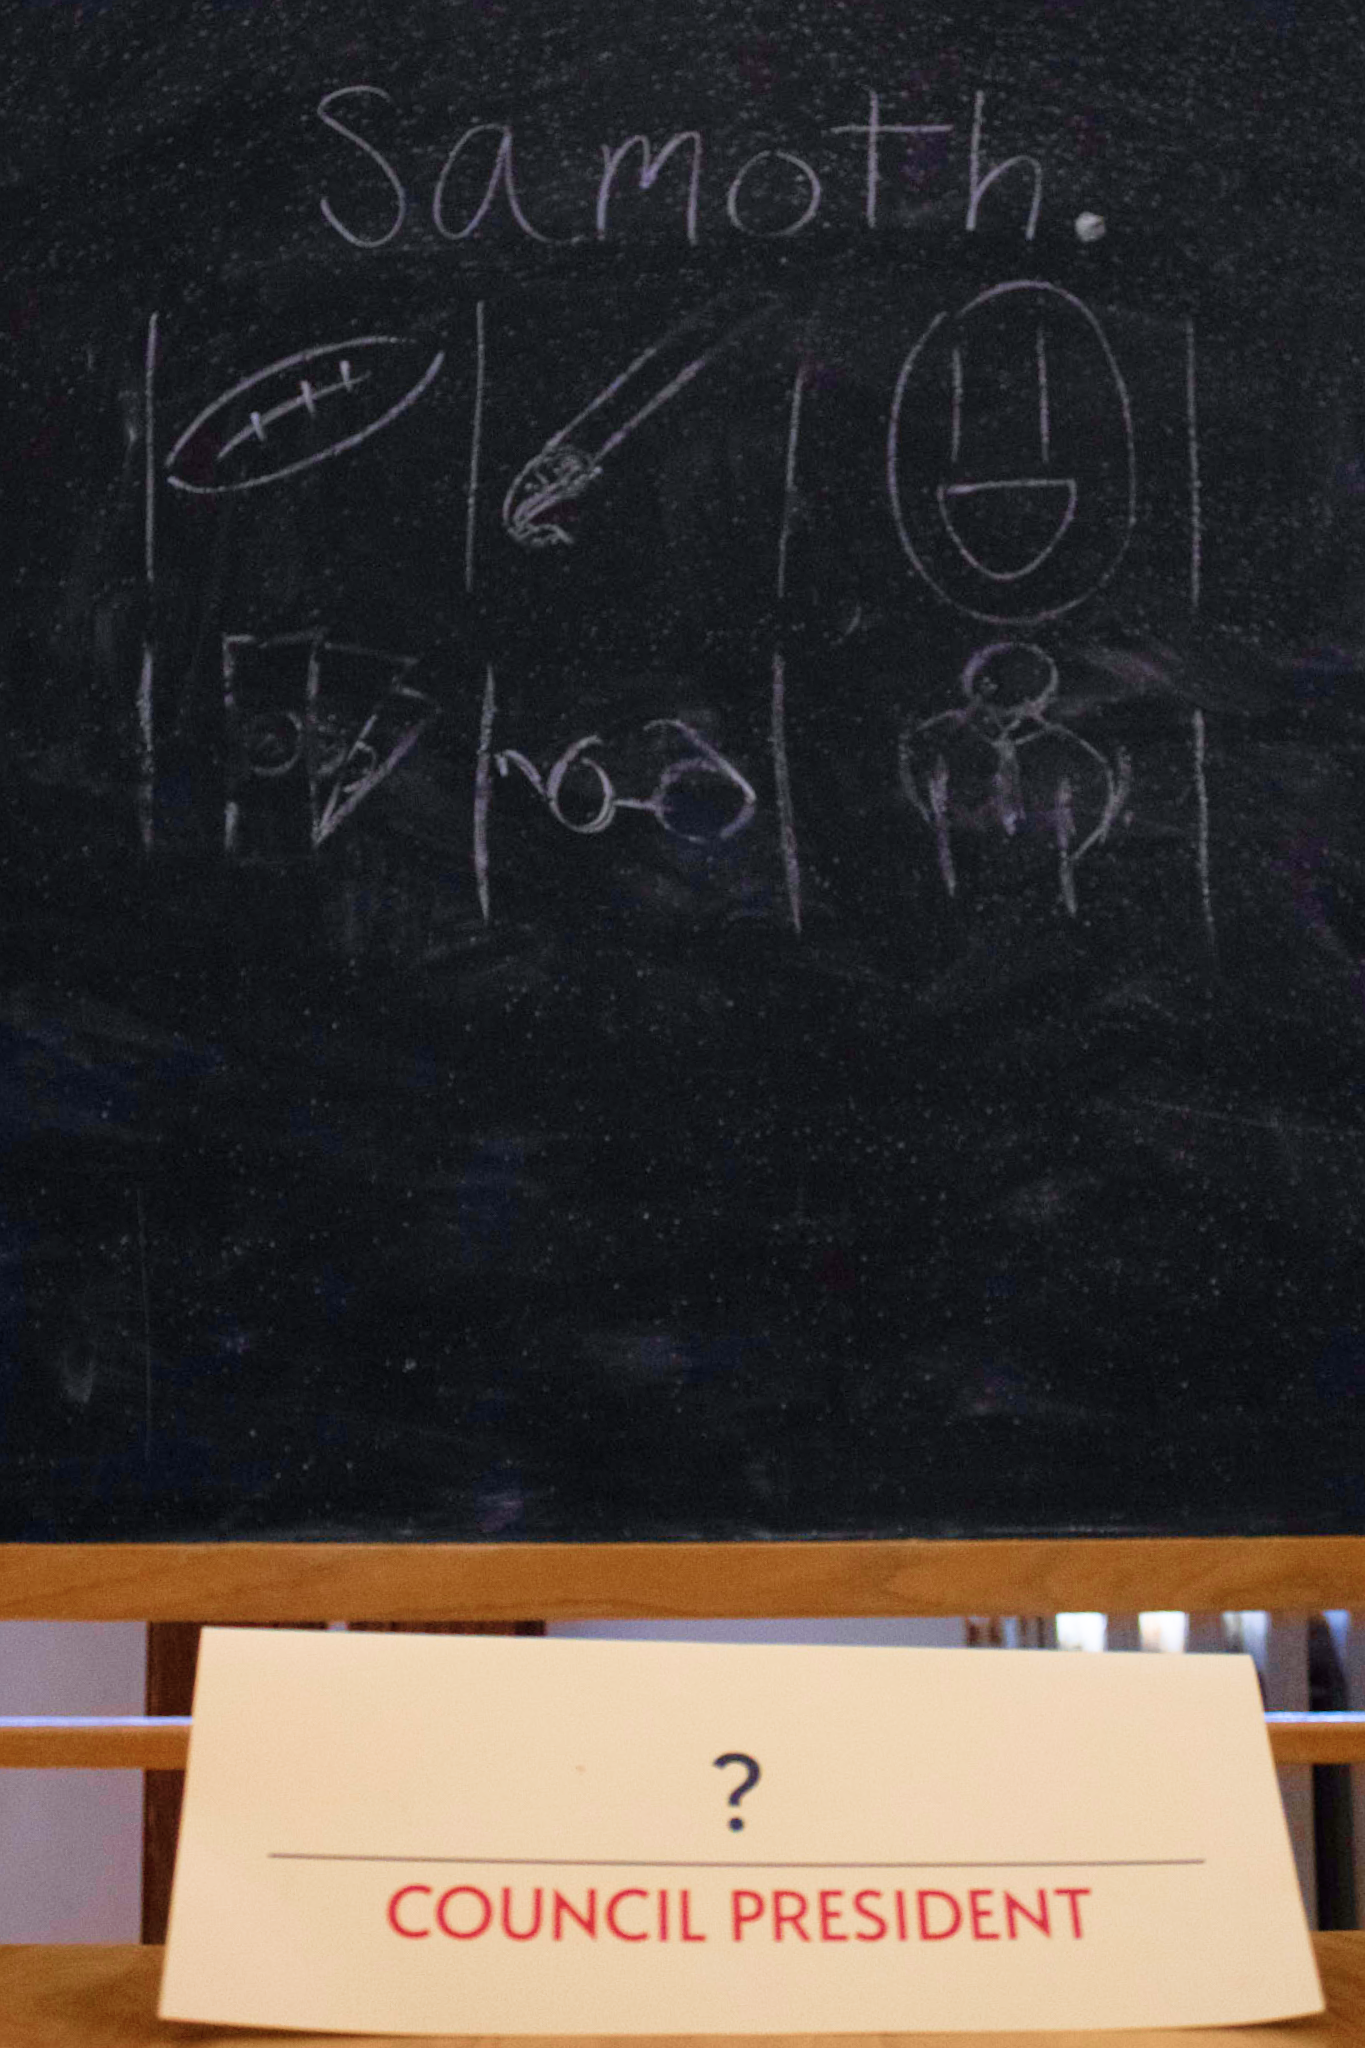 Samoth.
?
COUNCIL PRESIDENT